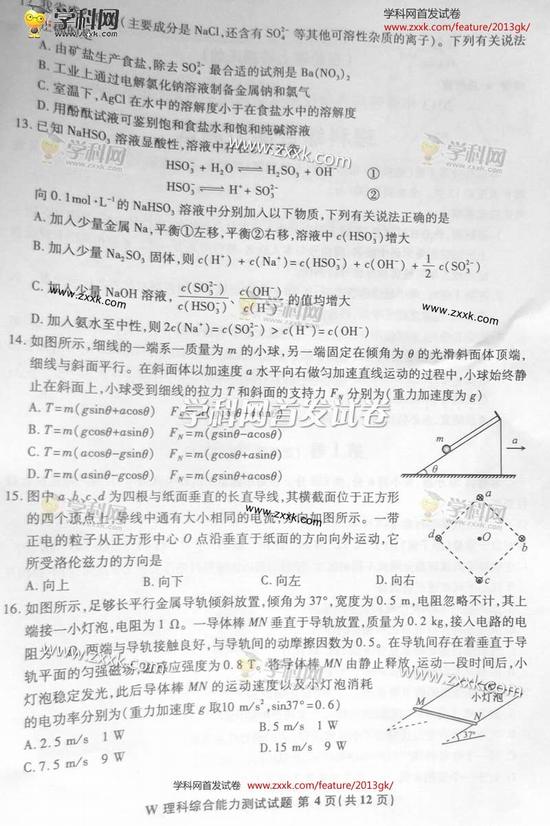 学科网首发试卷
www.zxxk.com/feature/2013gk/
12. 我省
(主要成分是 NaCl,还含有 SO₄²⁻ 等其他可溶性杂质的离子)。下列有关说法
A. 由矿盐生产食盐,除去 SO₄²⁻ 最合适的试剂是 Ba(NO₃)₂
B. 工业上通过电解氯化钠溶液制备金属钠和氯气
C. 室温下,AgCl 在水中的溶解度小于在食盐水中的溶解度
D. 用酚酞试液可鉴别饱和食盐水和饱和纯碱溶液
13. 已知 NaHSO₃ 溶液显酸性,溶液中存在以下平衡
HSO₃⁻ + H₂O ⇌ H₂SO₃ + OH⁻ ①
HSO₃⁻ ⇌ H⁺ + SO₃²⁻ ②
向 0.1mol·L⁻¹的 NaHSO₃ 溶液中分别加入以下物质,下列有关说法正确的是
A. 加入少量金属 Na,平衡①左移,平衡②右移,溶液中 c(HSO₃⁻)增大
B. 加入少量 Na₂SO₃ 固体,则 c(H⁺) + c(Na⁺) = c(HSO₃⁻) + c(OH⁻) + 1/2 c(SO₃²⁻)
C. 加入少量 NaOH 溶液, c(SO₃²⁻)/c(HSO₃⁻)、c(OH⁻)/c(H⁺) 的值均增大
D. 加入氨水至中性,则 2c(Na⁺) = c(SO₃²⁻) > c(H⁺) = c(OH⁻)
14. 如图所示,细线的一端系一质量为 m 的小球,另一端固定在倾角为 θ 的光滑斜面体顶端,
细线与斜面平行。在斜面体以加速度 a 水平向右做匀加速直线运动的过程中,小球始终静
止在斜面上,小球受到细线的拉力 T 和斜面的支持力 F_N 分别为(重力加速度为 g)
A. T=m(gsinθ+acosθ) F_N=m(gcosθ-asinθ)
B. T=m(gcosθ+asinθ) F_N=m(gsinθ-acosθ)
C. T=m(acosθ-gsinθ) F_N=m(gcosθ+asinθ)
D. T=m(asinθ-gcosθ) F_N=m(gsinθ+acosθ)
m
a
θ
15. 图中 a,b,c,d 为四根与纸面垂直的长直导线,其横截面位于正方形
的四个顶点上,导线中通有大小相同的电流,方向如图所示。一带
正电的粒子从正方形中心 O 点沿垂直于纸面的方向向外运动,它
所受洛伦兹力的方向是
A. 向上 B. 向下 C. 向左 D. 向右
a
d
O
b
c
16. 如图所示,足够长平行金属导轨倾斜放置,倾角为 37°,宽度为 0.5 m,电阻忽略不计,其上
端接一小灯泡,电阻为 1 Ω。一导体棒 MN 垂直于导轨放置,质量为 0.2 kg,接入电路的电
阻为 1 Ω,两端与导轨接触良好,与导轨间的动摩擦因数为 0.5。在导轨间存在着垂直于导
轨平面的匀强磁场,磁感应强度为 0.8 T。将导体棒 MN 由静止释放,运动一段时间后,小
灯泡稳定发光,此后导体棒 MN 的运动速度以及小灯泡消耗
的电功率分别为(重力加速度 g 取10 m/s²,sin37°=0.6)
A. 2.5 m/s 1 W
B. 5 m/s 1 W
C. 7.5 m/s 9 W
D. 15 m/s 9 W
小灯泡
M
N
37°
W 理科综合能力测试试题 第 4 页(共 12 页)
学科网首发试卷 www.zxxk.com/feature/2013gk/
学科网
www.zxxk.com
学科网首发试卷